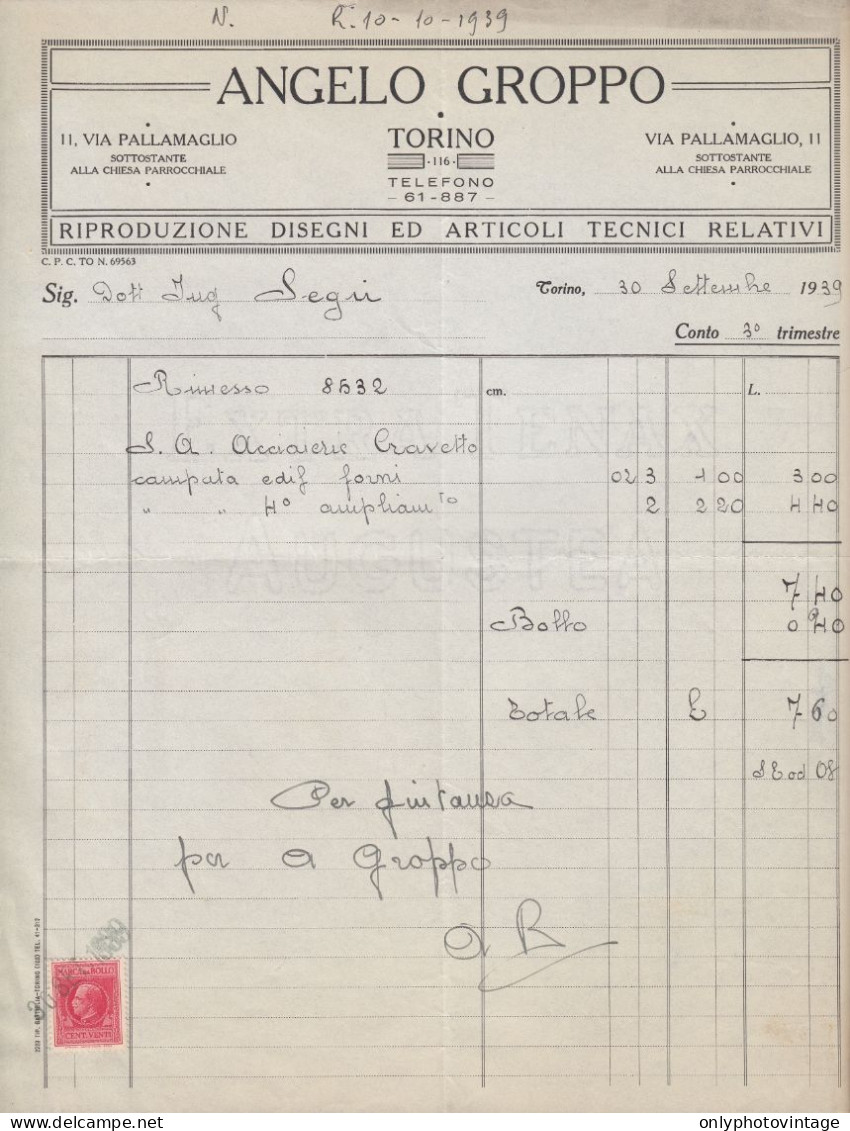 N. R. 10-10-1939
ANGELO GROPPO
11, VIA PALLAMAGLIO
SOTTOSTANTE
ALLA CHIESA PARROCCHIALE
TORINO
·116·
TELEFONO
- 61-887 -
VIA PALLAMAGLIO, 11
SOTTOSTANTE
ALLA CHIESA PARROCCHIALE
RIPRODUZIONE DISEGNI ED ARTICOLI TECNICI RELATIVI
C. P. C. TO N. 69563
Sig. Dott Ing Segri
Torino, 30 Settembre 1939
Conto 3° trimestre
Rimesso 8532 cm. L.
S. A. Acciaierie Cravetto
campata edif forni 02 3 1 00 3 00
" " 4° ampliam to 2 2 20 4 40
7 40
Bollo
Totale £ 7 60
S E od 08
Per quitanza
per A Groppo
A B
MARCA DA BOLLO
CENT. VENTI
onlyphotovintage